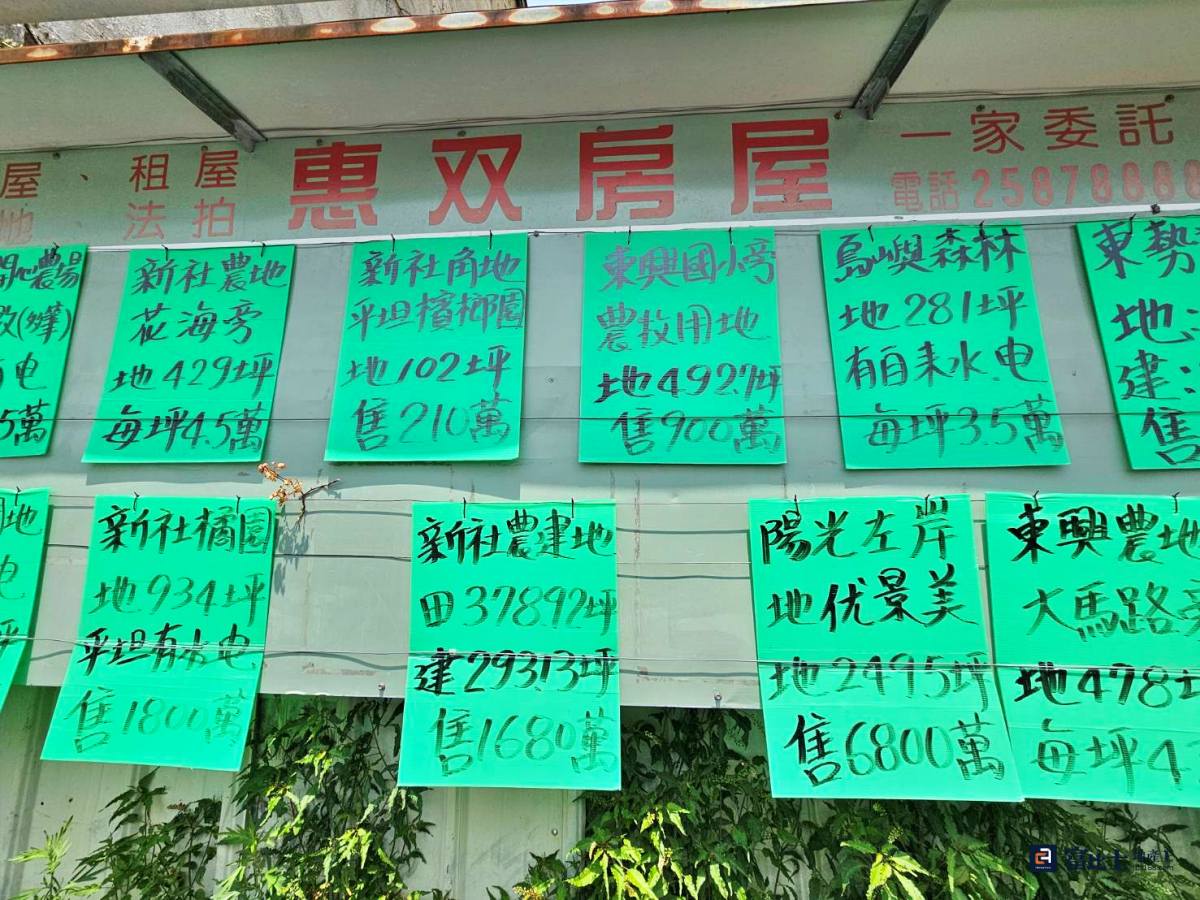 屋、租屋
法拍
惠双房屋
一家委託
電話25878888
農場
电
5萬
新社農地
花海旁
地429坪
每坪4.5萬
新社角地
平坦檳榔園
地102坪
售210萬
東興國小旁
農牧用地
地492.7坪
售900萬
島嶼森林
地281坪
有自来水.电
每坪3.5萬
東勢
地
建
售
地
电
坪
新社橘園
地934坪
平坦有水电
售1800萬
新社農建地
田378.92坪
建293.13坪
售1680萬
陽光左岸
地优景美
地2495坪
售6800萬
東興農地
大馬路旁
地478坪
每坪4